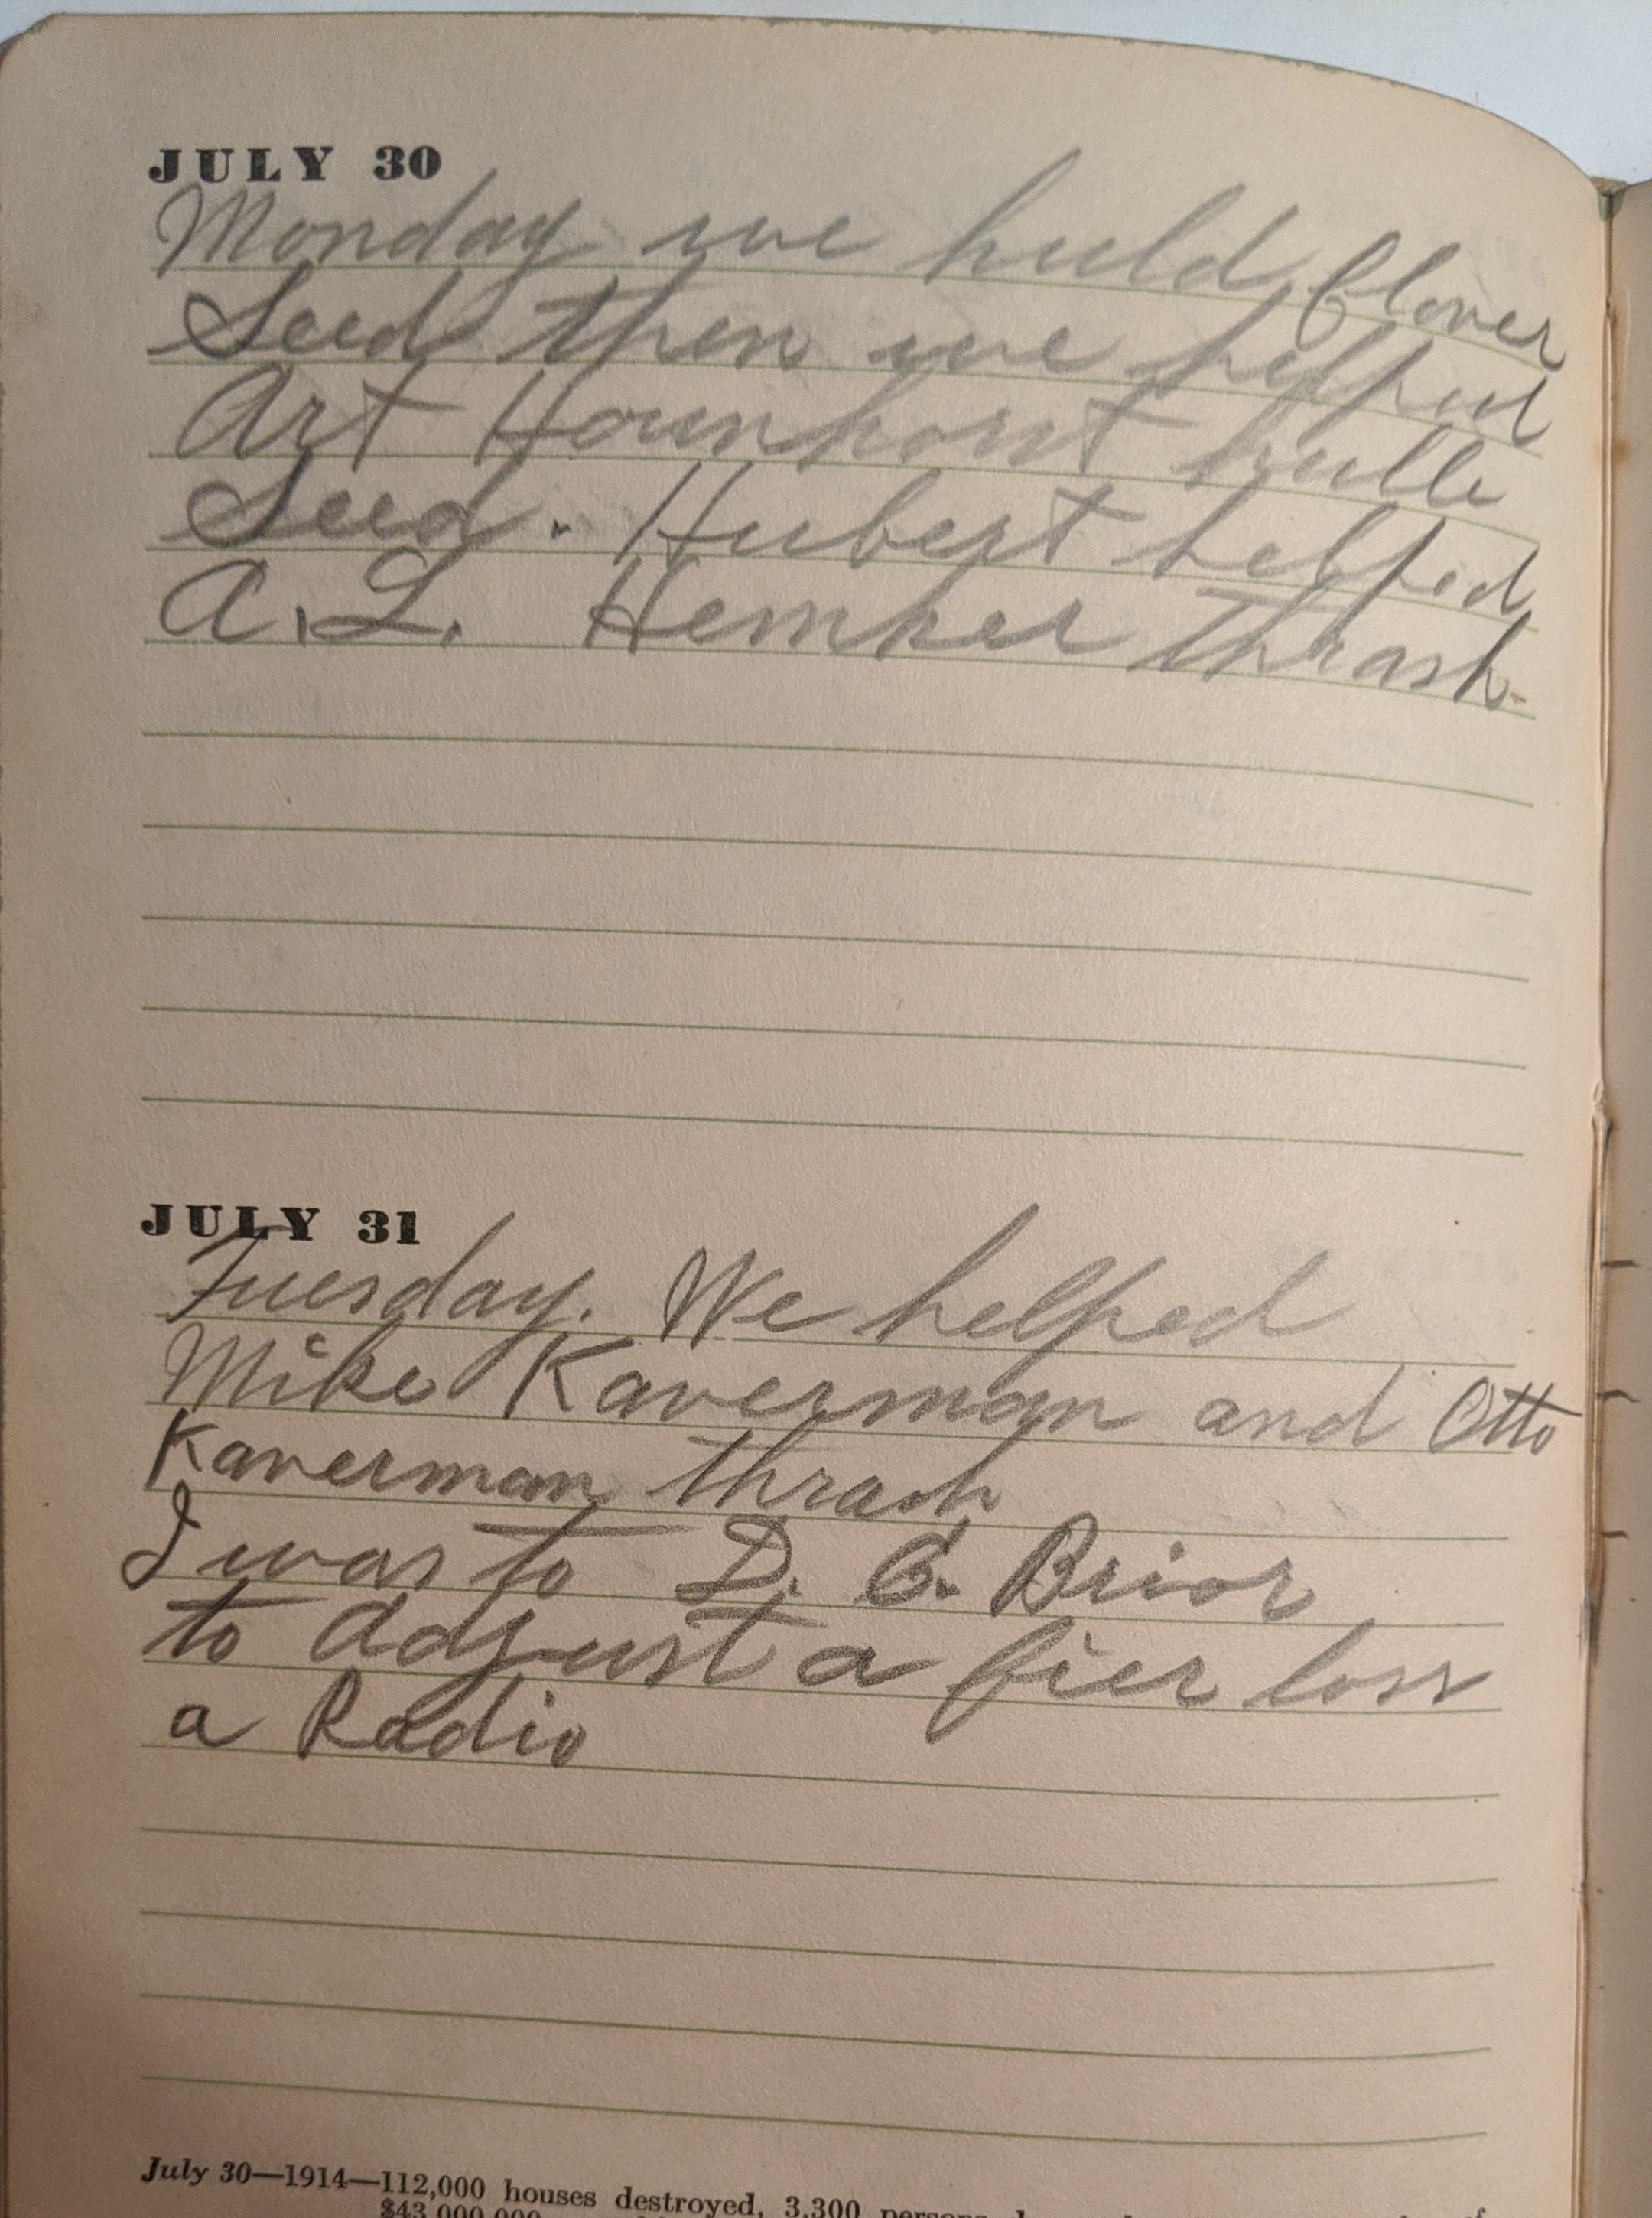 JULY 30
Monday we huld Clover
Seed then we helped
Art hulle
Seed. Hubert helped
A. L. Hemker thrash
JULY 31
Tuesday. We helped
Mike Kaverman and Otto
Kaverman thrash
I was to D. C. Brior
to Adjust a fier loss
a Radio
July 30—1914—112,000 houses destroyed, 3,300 persons
$43,000,000